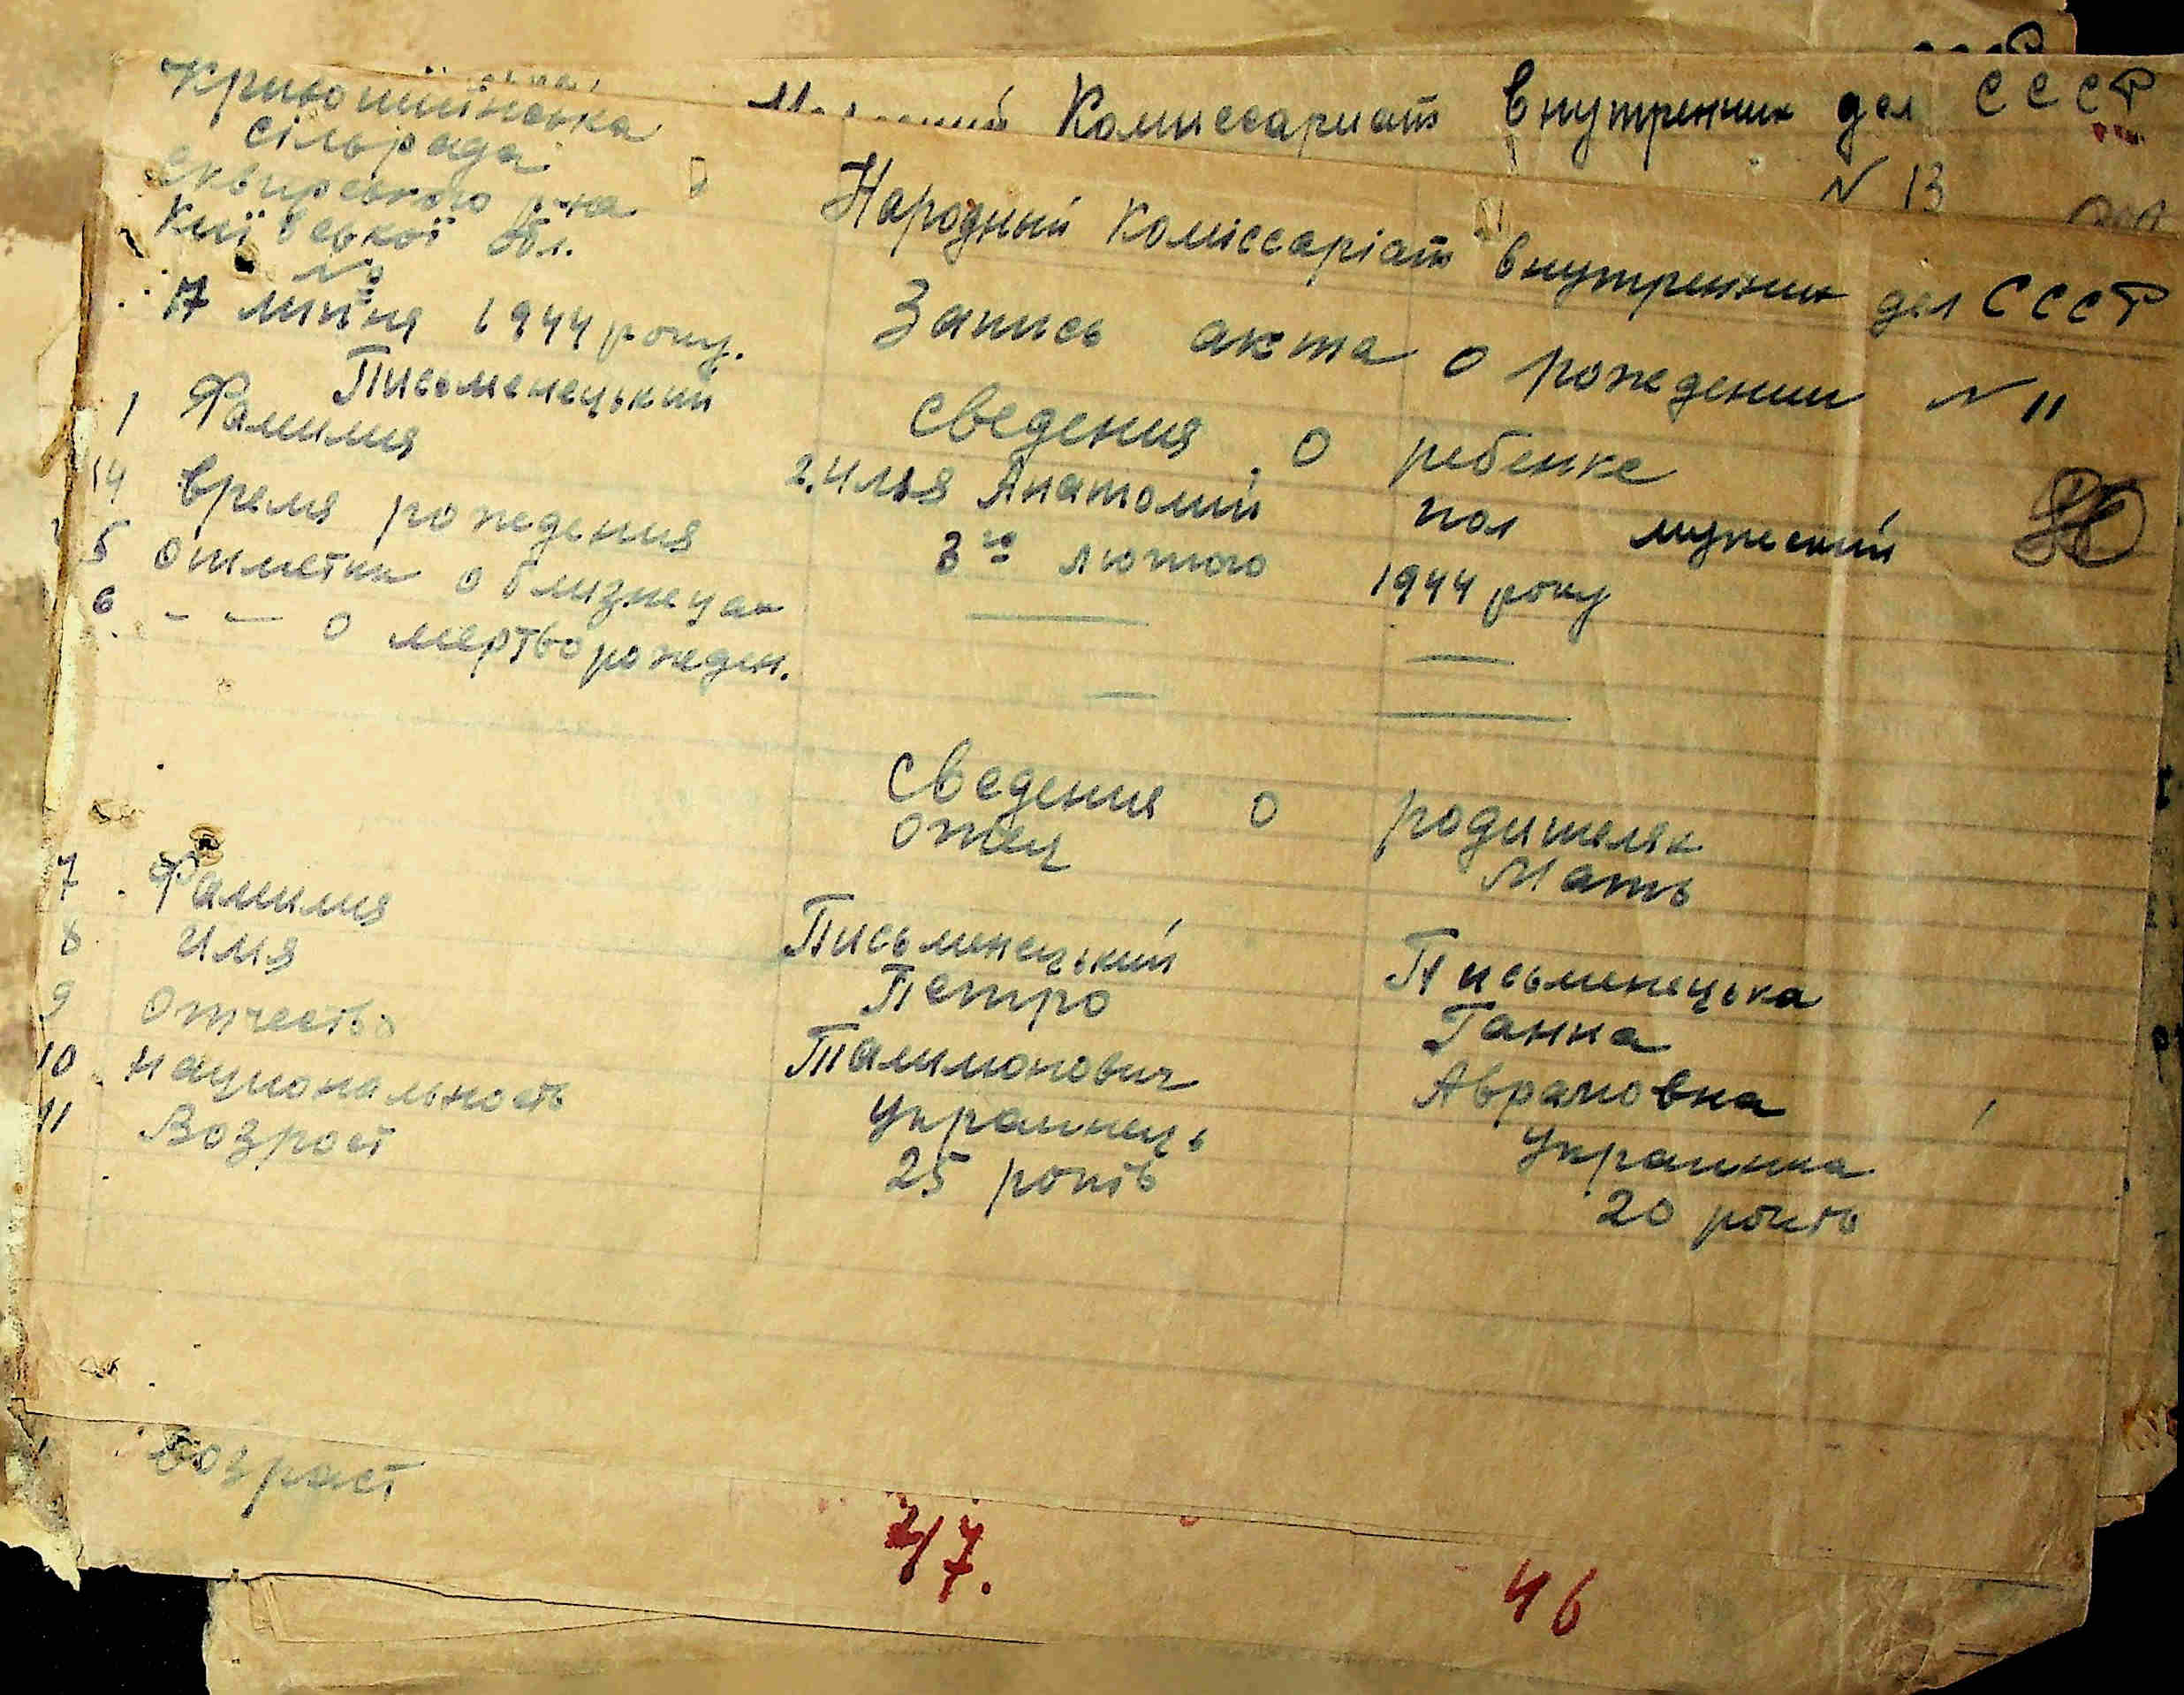 Комиссариат Внутренних дел СССР
N 13
Кривошиїнська
сільрада
Сквирського р-на
Київської обл.
№
17 липня 1944 року.
Народний Коміссаріат внутренних дел СССР
Запись акта о рождении N 11
Сведения о ребенке
Письменецький
1 Фамилия 2. Имя Анатолий пол мужский
4 Время рождения 3го лютого 1944 року
5 отметки о близнецах — —
6 - - о мертворожден. — —
Сведения о родителях
отец Мать
7 Фамилия Письменецький Письменецька
8 Имя Петро Ганна
9 Отчество Талимонович Аврамовна
10 Национальность Украинець Украинка
11 Возрост 25 років 20 років
Возраст
47.
46